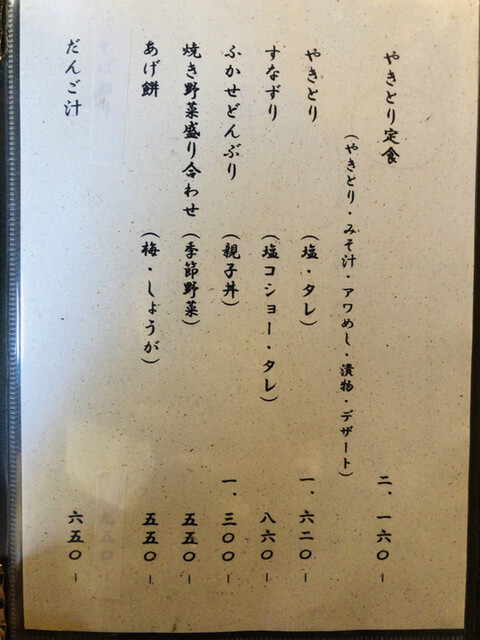 やきとり定食 二、一六〇-
(やきとり・みそ汁・アワめし・漬物・デザート)
やきとり (塩・タレ) 一、六二〇-
すなずり (塩コショー・タレ) 八六〇-
ふかせどんぶり (親子丼) 一、三〇〇-
焼き野菜盛り合わせ (季節野菜) 五五〇-
あげ餅 (梅・しょうが) 五五〇-
だんご汁 六五〇-